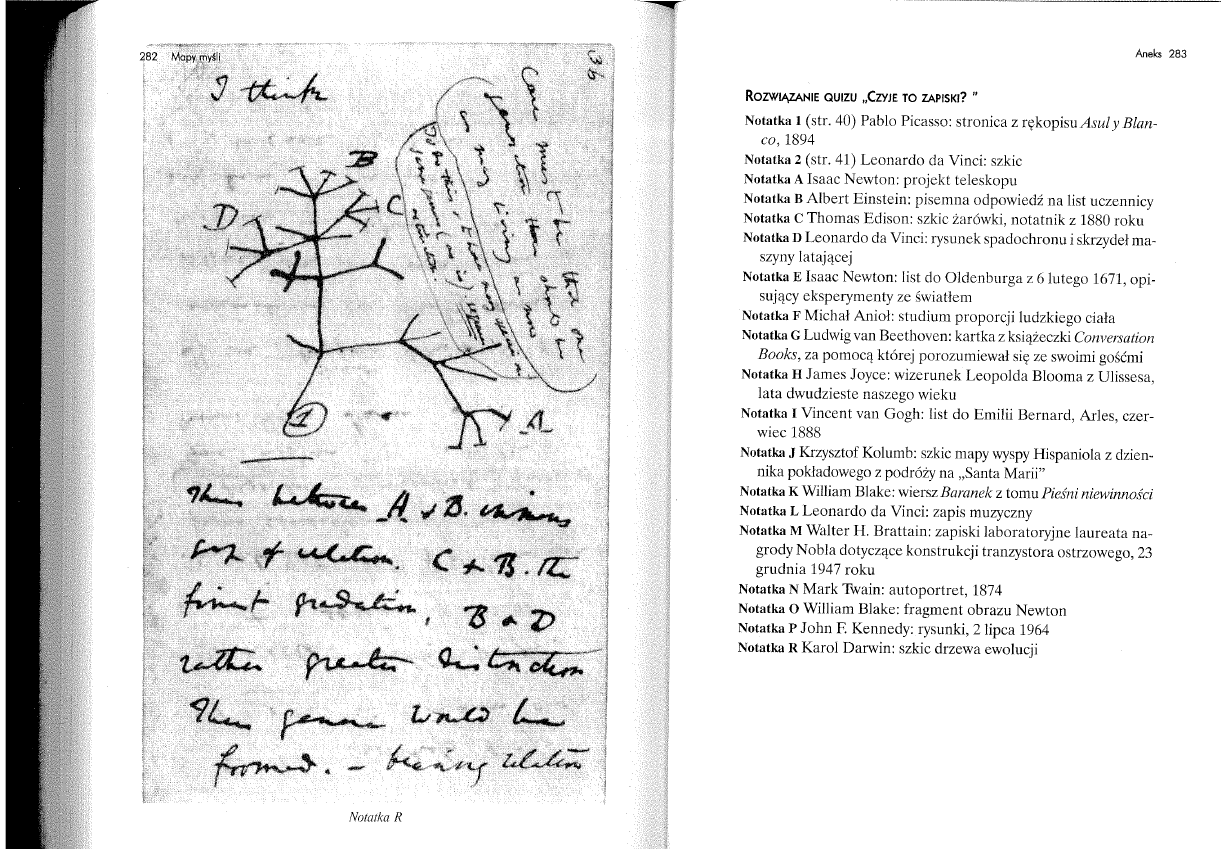 282 Mapy myśli
36
I think
Case must be that one
generation then should be
as many living as now
To do this & to have many species in
same genus (as is) requires
extinction.
B
C
D
1
A
Thus between A & B. immense
gap of relation. C & B. the
finest gradation, B & D
rather greater distinction
Thus genera would be
formed. – bearing relation
Notatka R
Aneks 283
ROZWIĄZANIE QUIZU „CZYJE TO ZAPISKI? ”
Notatka 1 (str. 40) Pablo Picasso: stronica z rękopisu Asul y Blan-
co, 1894
Notatka 2 (str. 41) Leonardo da Vinci: szkic
Notatka A Isaac Newton: projekt teleskopu
Notatka B Albert Einstein: pisemna odpowiedź na list uczennicy
Notatka C Thomas Edison: szkic żarówki, notatnik z 1880 roku
Notatka D Leonardo da Vinci: rysunek spadochronu i skrzydeł ma-
szyny latającej
Notatka E Isaac Newton: list do Oldenburga z 6 lutego 1671, opi-
sujący eksperymenty ze światłem
Notatka F Michał Anioł: studium proporcji ludzkiego ciała
Notatka G Ludwig van Beethoven: kartka z książeczki Conversation
Books, za pomocą której porozumiewał się ze swoimi gośćmi
Notatka H James Joyce: wizerunek Leopolda Blooma z Ulissesa,
lata dwudzieste naszego wieku
Notatka I Vincent van Gogh: list do Emilii Bernard, Arles, czer-
wiec 1888
Notatka J Krzysztof Kolumb: szkic mapy wyspy Hispaniola z dzien-
nika pokładowego z podróży na „Santa Marii”
Notatka K William Blake: wiersz Baranek z tomu Pieśni niewinności
Notatka L Leonardo da Vinci: zapis muzyczny
Notatka M Walter H. Brattain: zapiski laboratoryjne laureata na-
grody Nobla dotyczące konstrukcji tranzystora ostrzowego, 23
grudnia 1947 roku
Notatka N Mark Twain: autoportret, 1874
Notatka O William Blake: fragment obrazu Newton
Notatka P John F. Kennedy: rysunki, 2 lipca 1964
Notatka R Karol Darwin: szkic drzewa ewolucji